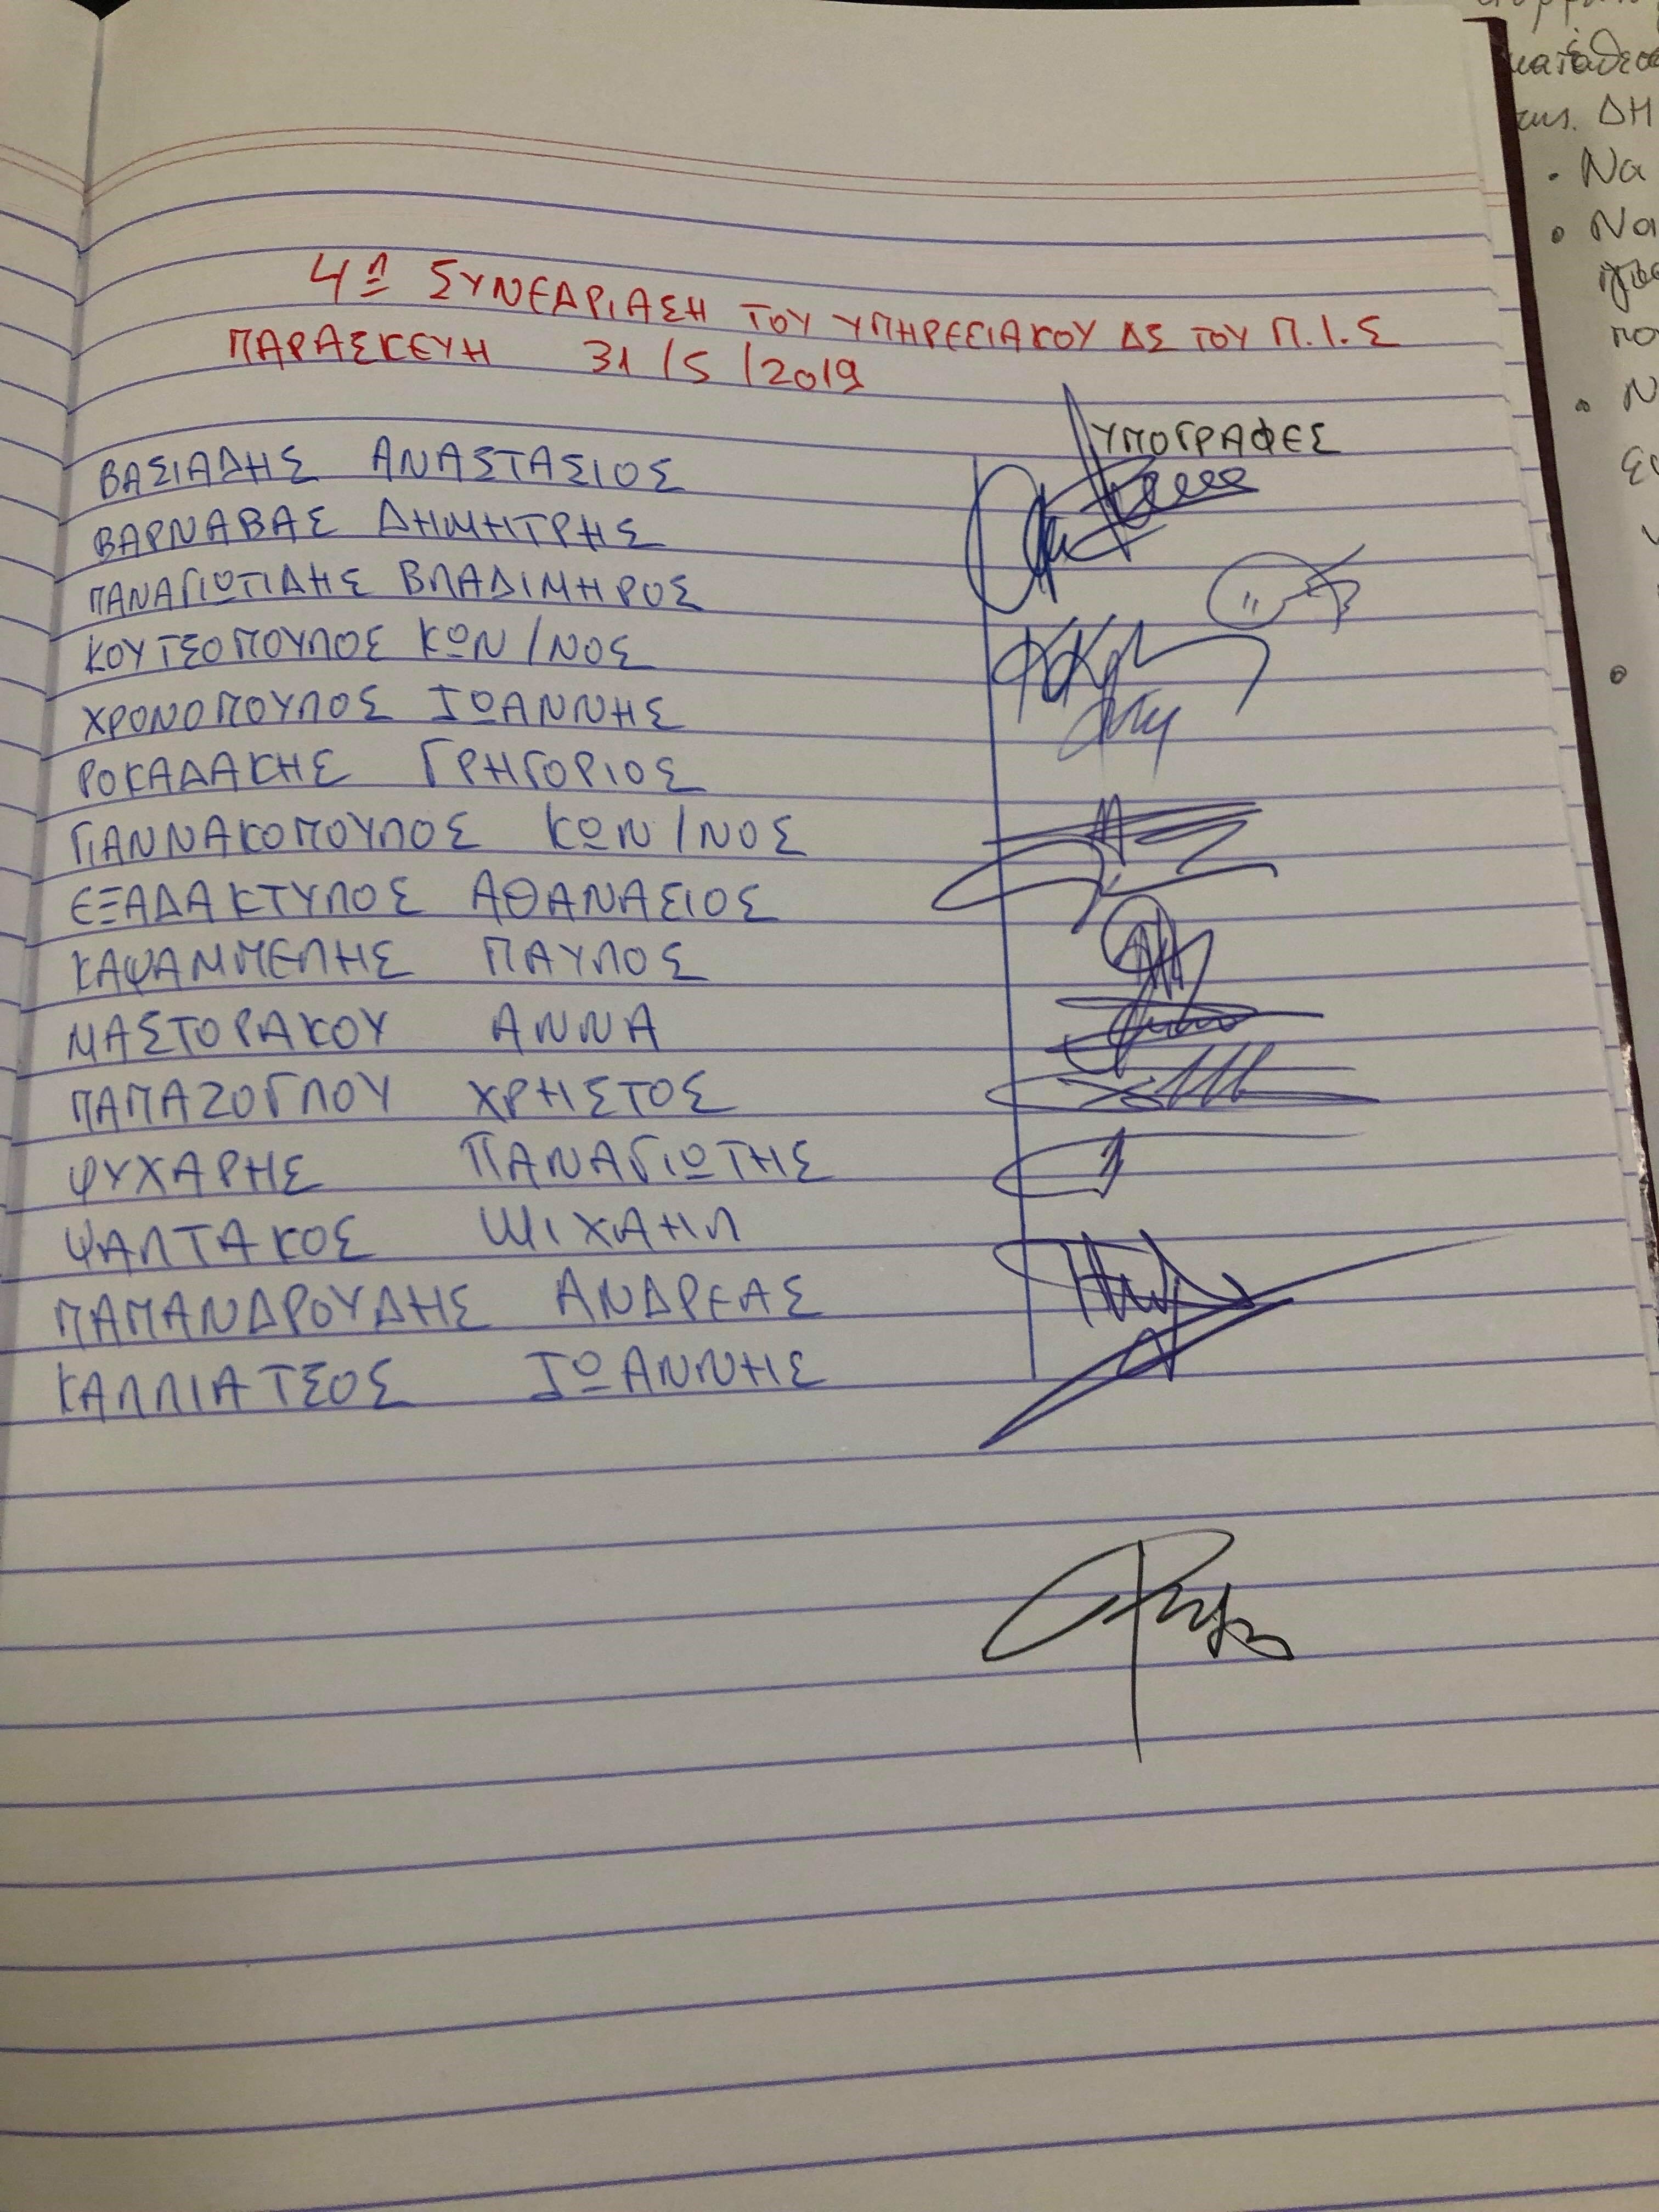 4η ΣΥΝΕΔΡΙΑΣΗ ΤΟΥ ΥΠΗΡΕΣΙΑΚΟΥ ΔΣ ΤΟΥ Π.Ι.Σ
ΠΑΡΑΣΚΕΥΗ 31/5/2019
ΥΠΟΓΡΑΦΕΣ
ΒΑΣΙΑΔΗΣ ΑΝΑΣΤΑΣΙΟΣ
ΒΑΡΝΑΒΑΣ ΔΗΜΗΤΡΗΣ
ΠΑΝΑΓΙΩΤΙΔΗΣ ΒΛΑΔΙΜΗΡΟΣ
ΚΟΥΤΣΟΠΟΥΛΟΣ ΚΩΝ/ΝΟΣ
ΧΡΟΝΟΠΟΥΛΟΣ ΙΩΑΝΝΗΣ
ΡΟΚΑΔΑΚΗΣ ΓΡΗΓΟΡΙΟΣ
ΓΙΑΝΝΑΚΟΠΟΥΛΟΣ ΚΩΝ/ΝΟΣ
ΕΞΑΔΑΚΤΥΛΟΣ ΑΘΑΝΑΣΙΟΣ
ΚΑΨΑΜΠΕΛΗΣ ΠΑΥΛΟΣ
ΜΑΣΤΟΡΑΚΟΥ ΑΝΝΑ
ΠΑΠΑΖΟΓΛΟΥ ΧΡΗΣΤΟΣ
ΨΥΧΑΡΗΣ ΠΑΝΑΓΙΩΤΗΣ
ΨΑΛΤΑΚΟΣ ΜΙΧΑΗΛ
ΠΑΠΑΝΔΡΟΥΔΗΣ ΑΝΔΡΕΑΣ
ΚΑΛΛΙΑΤΣΟΣ ΙΩΑΝΝΗΣ
ΔΗ
· Να
• Να